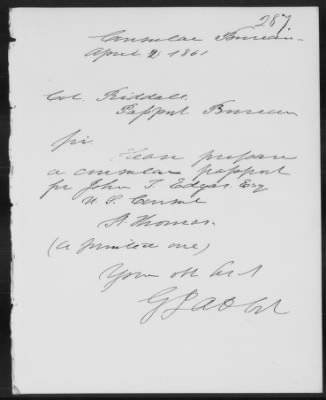 287
Consular Bureau
April 2 1861
Col. Riddall
Passport Bureau
Sir.
Please prepare
a consular passport
for John T. Edgar Esq
U. S. Consul
St Thomas.
(a printed one)
Your obt